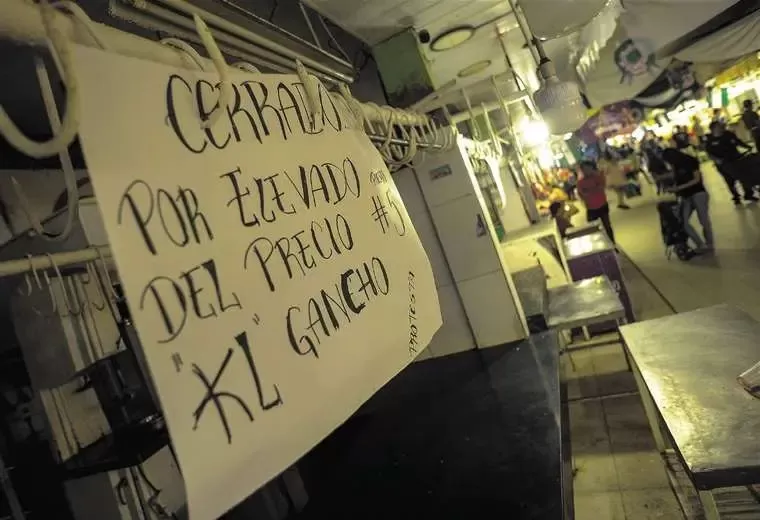 CERRADO
POR ELEVADO
DEL PRECIO
"KL" GANCHO
#3
PROTESTA